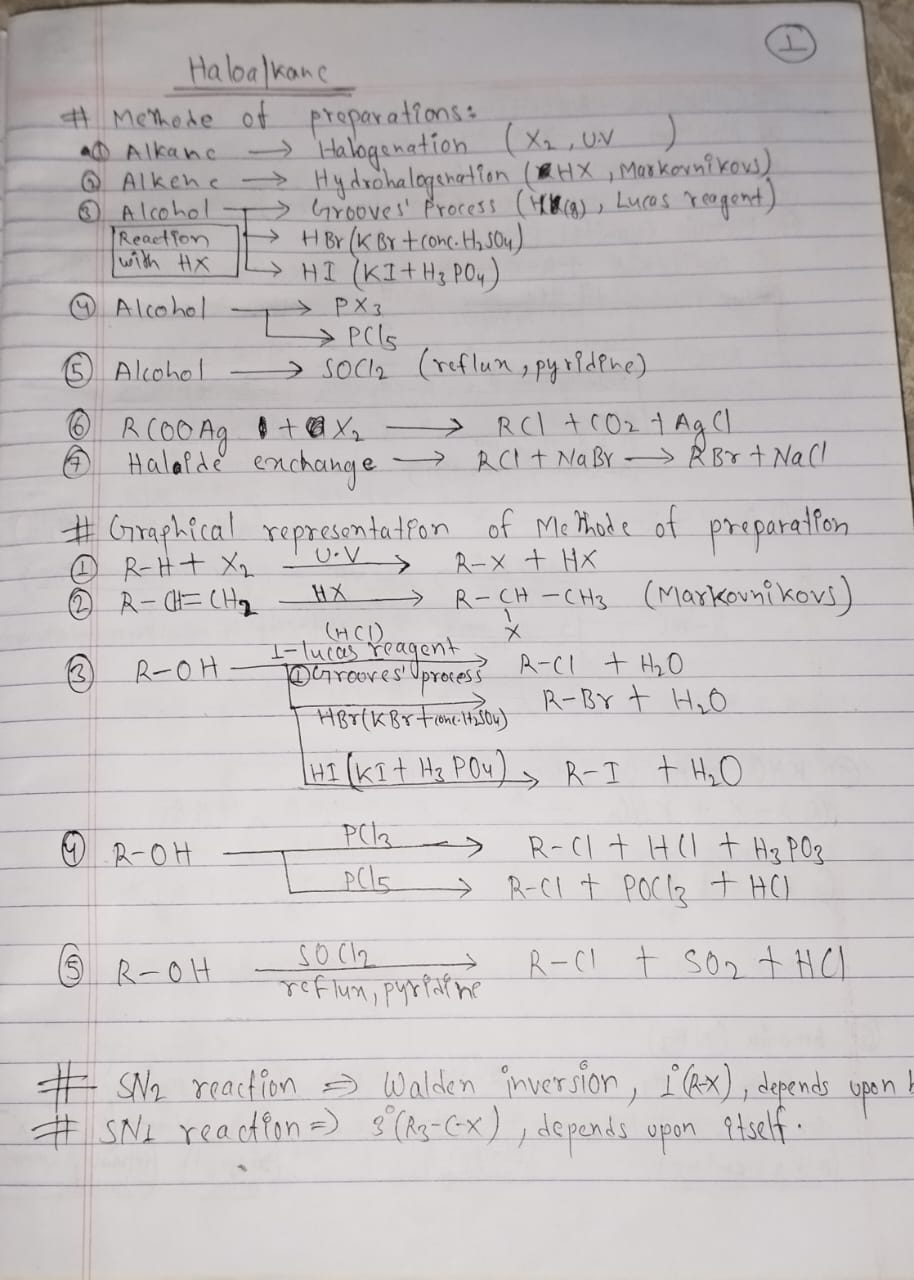 1
Haloalkane
# Methode of preparations:
① Alkane → Halogenation (X₂, U.V )
② Alkene → Hydrohalogenation (HX, Markovnikovs)
③ Alcohol → Grooves' Process ( (g), Lucas reagent)
Reaction with HX → HBr (KBr + conc. H₂SO₄)
→ HI (KI + H₃PO₄)
④ Alcohol → PX₃
→ PCl₅
⑤ Alcohol → SOCl₂ (reflux, pyridine)
⑥ RCOOAg + X₂ → RCl + CO₂ + AgCl
⑦ Halaide exchange → RCl + NaBr → RBr + NaCl
# Graphical representation of Methode of preparation
① R-H + X₂ U.V → R-X + HX
② R-CH=CH₂ HX → R-CH-CH₃ (Markovnikovs)
X
(HCl)
③ R-OH 1-lucas reagent → R-Cl + H₂O
① Grooves' process
→ R-Br + H₂O
HBr (KBr + conc. H₂SO₄)
HI (KI + H₃PO₄) → R-I + H₂O
④ R-OH PCl₃ → R-Cl + HCl + H₃PO₃
PCl₅ → R-Cl + POCl₃ + HCl
⑤ R-OH SOCl₂ → R-Cl + SO₂ + HCl
reflux, pyridine
# SN₂ reaction ⇒ Walden inversion, 1°(R-X), depends upon
# SN₁ reaction ⇒ 3°(R₃-C-X), depends upon itself.